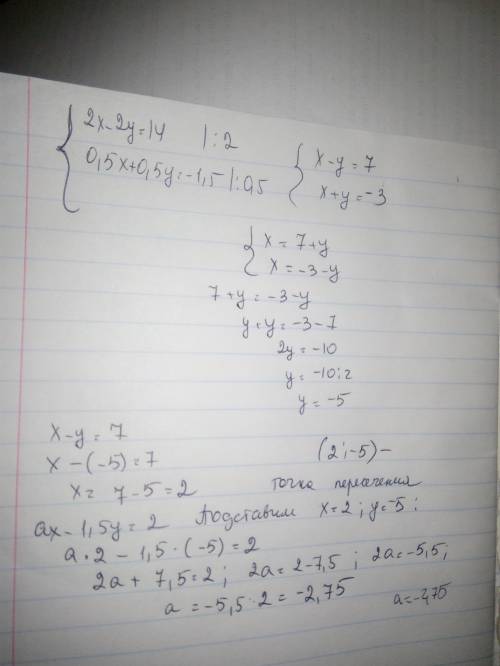 2x-2y=14 |:2
0,5x+0,5y=-1,5 |:0,5
x-y=7
x+y=-3
x=7+y
x=-3-y
7+y=-3-y
y+y=-3-7
2y=-10
y=-10:2
y=-5
x-y=7
x-(-5)=7
x=7-5=2
(2;-5)-
точка пересечения
ax-1,5y=2 Подставим x=2; y=-5:
a·2-1,5·(-5)=2
2a+7,5=2; 2a=2-7,5; 2a=-5,5;
a=-5,5:2=-2,75 a=-2,75